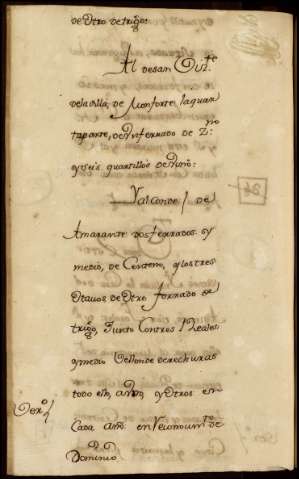 de Otro de trigo:
Al de San Vizte
de la villa, de Monforte, la quar
ta parte, de Un ferrado de Zno
y seis quartillos de Vino:
Y al Conde / de
Amarante dos ferrados y
medio, de Centeno, y los tres
Otavos de Otro ferrado de
trigo, Junto Con tres Reales
y medio de derechuras
todo ello, año, y Otros en
Cada año en Reconoznto de
Dominio.